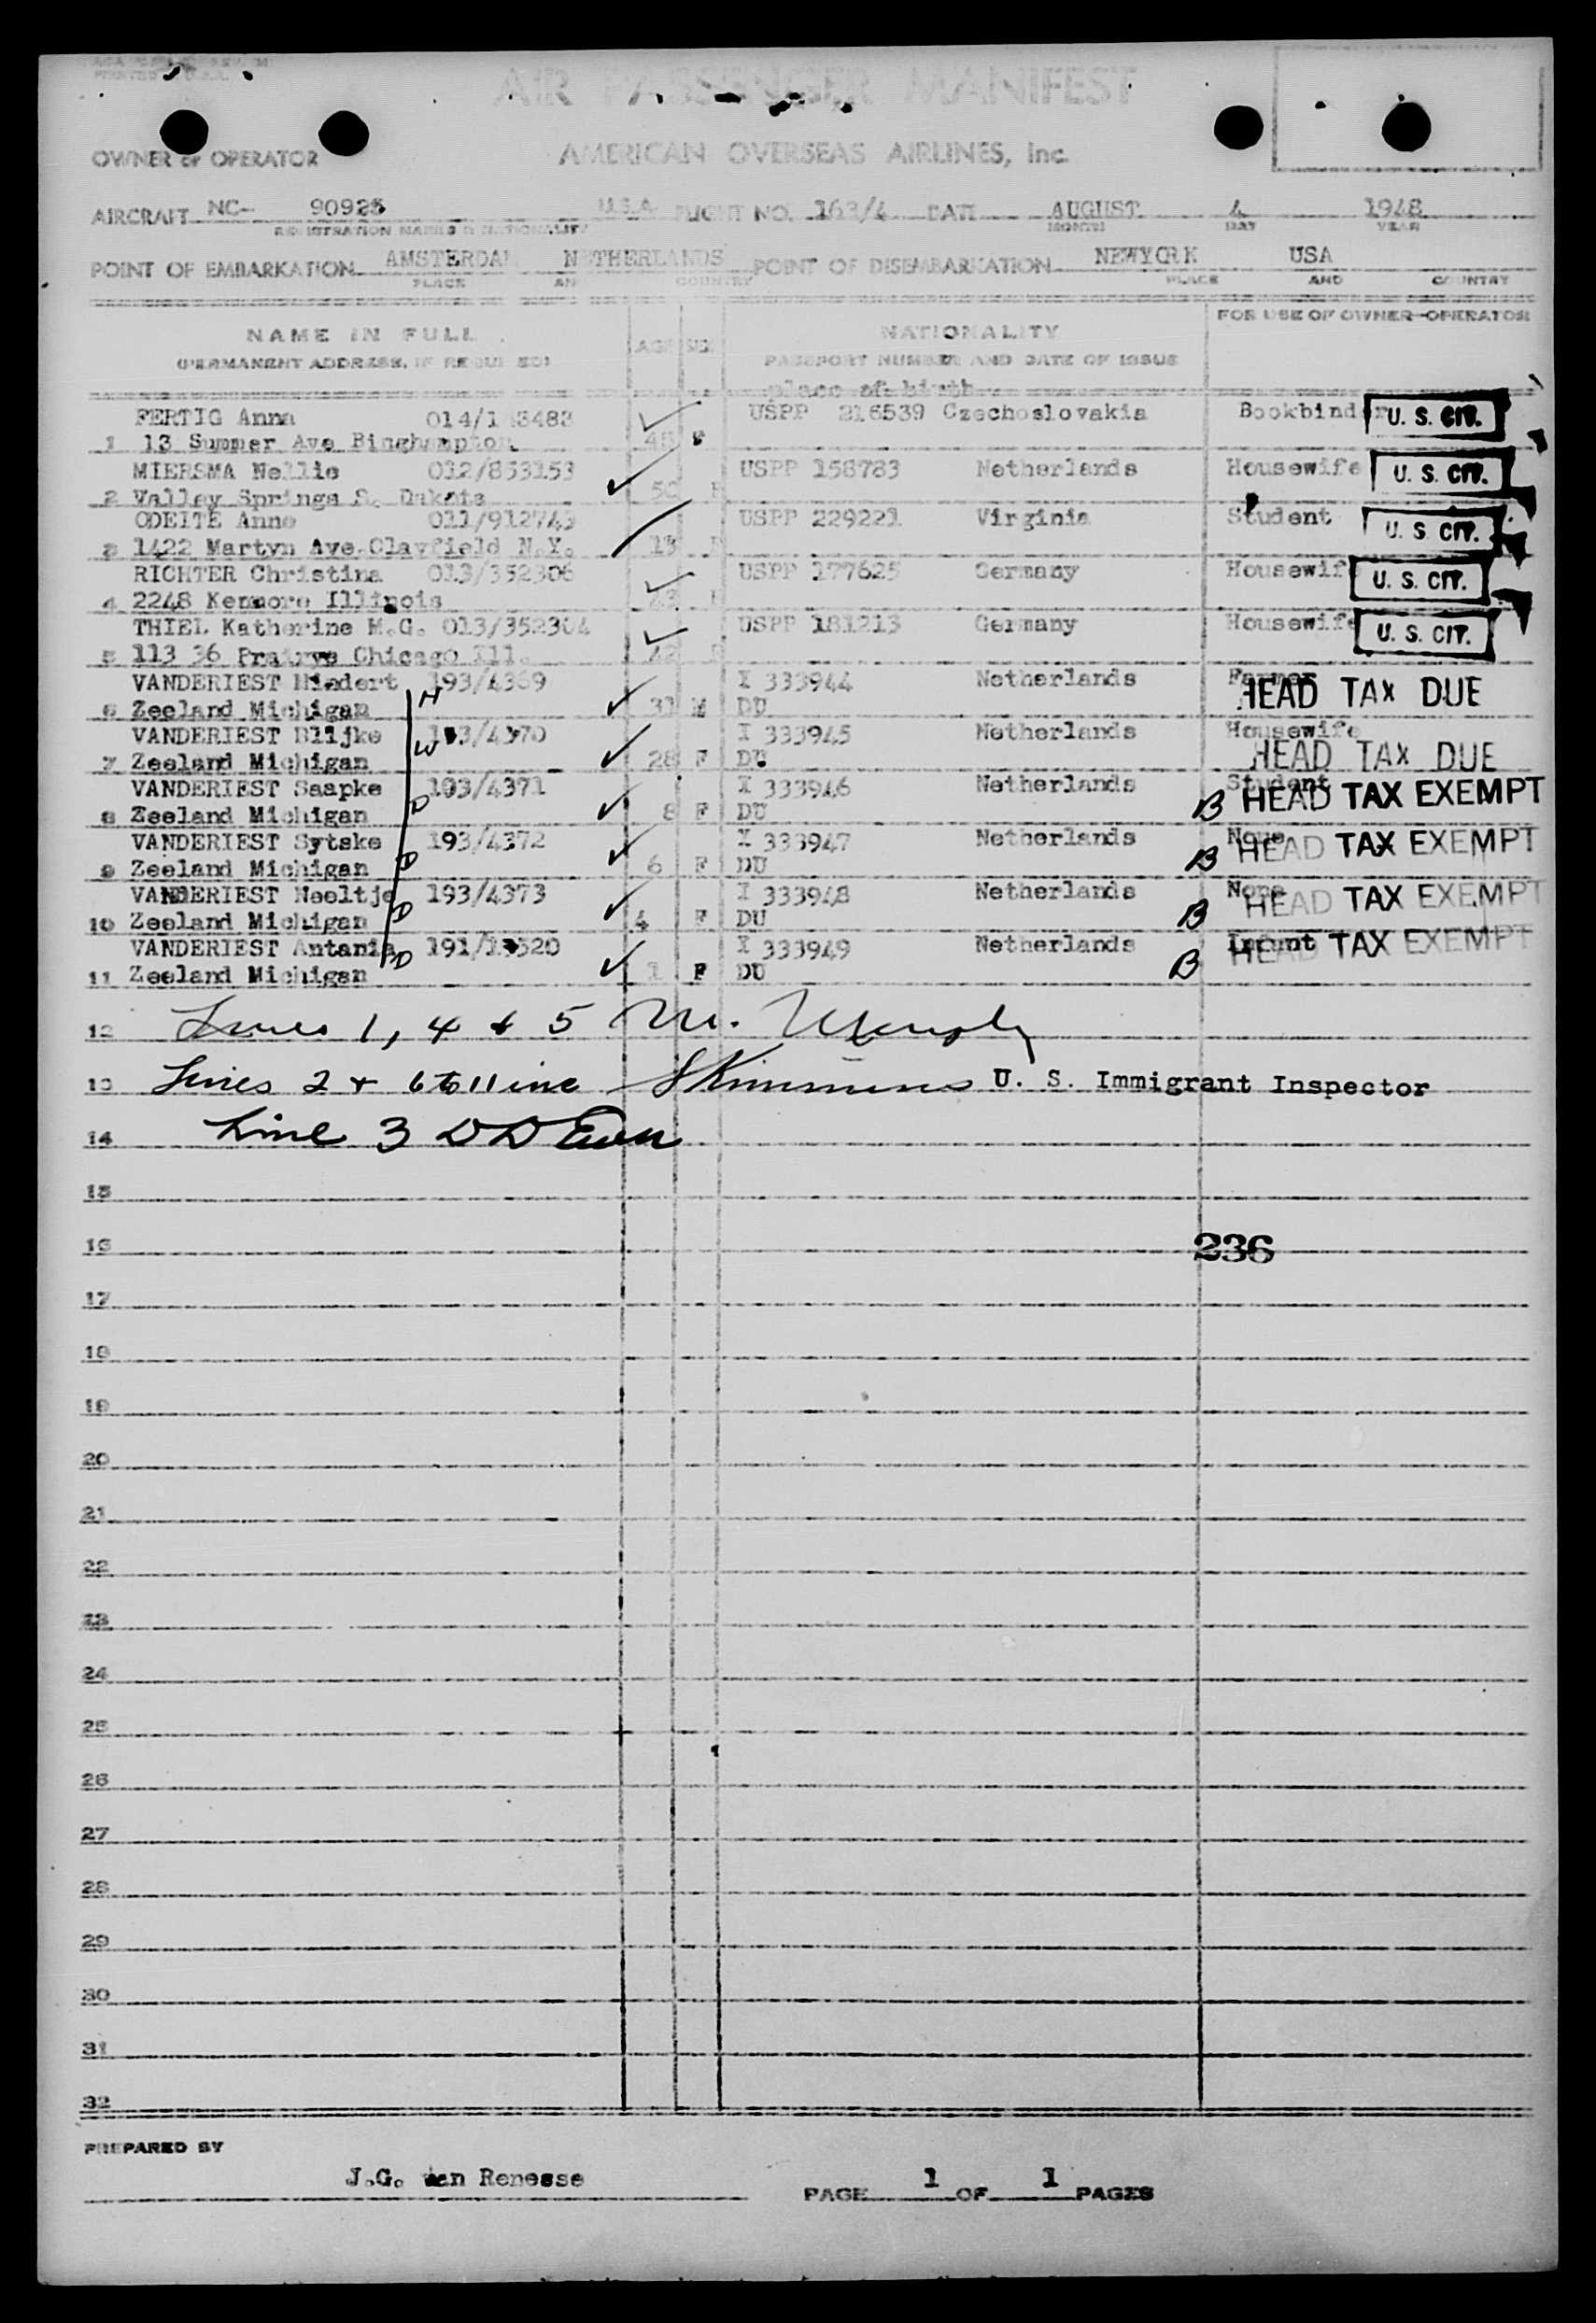 AIR PASSENGER MANIFEST
OWNER or OPERATOR AMERICAN OVERSEAS AIRLINES, Inc.
AIRCRAFT NC- 90925 U.S.A FLIGHT NO. 163/4 DATE AUGUST 4 1948
REGISTRATION MARKS & NATIONALITY MONTH DAY YEAR
POINT OF EMBARKATION AMSTERDAM NETHERLANDS POINT OF DISEMBARKATION NEWYORK USA
PLACE AND COUNTRY PLACE AND COUNTRY
NAME IN FULL AGE SEX NATIONALITY FOR USE OF OWNER-OPERATOR
(PERMANENT ADDRESS, IF REQUIRED) PASSPORT NUMBER AND DATE OF ISSUE
place of birth
FERTIG Anna USPP 216539 Czechoslovakia Bookbinder U. S. CIT.
1 13 Summer Ave Binghampton F
MIERSMA Nellie 012/853153 USPP 158783 Netherlands Housewife U. S. CIT.
2 Valley Springs S. Dakota 50 F
ODEITE Anne 011/912743 USPP 229221 Virginia Student U. S. CIT.
3 1422 Martyn Ave Clayfield N.Y. 13 F
RICHTER Christina 013/352306 USPP 177625 Germany Housewife U. S. CIT.
4 2248 Kenmore Illinois
THIEL Katherine M.G. 013/352304 USPP 181213 Germany Housewife U. S. CIT.
5 113 36 Prairye Chicago Ill. 42
VANDERIEST Hiedert 193/4369 I 333944 Netherlands Farmer
6 Zeeland Michigan H 31 M DU HEAD TAX DUE
VANDERIEST Blijke 193/4370 I 333945 Netherlands Housewife
7 Zeeland Michigan W 28 F DU HEAD TAX DUE
VANDERIEST Saapke 193/4371 I 333946 Netherlands Student
8 Zeeland Michigan D 8 F DU B HEAD TAX EXEMPT
VANDERIEST Sytske 193/4372 I 333947 Netherlands None
9 Zeeland Michigan D 6 F DU B HEAD TAX EXEMPT
VANDERIEST Neeltje 193/4373 I 333948 Netherlands None
10 Zeeland Michigan D 4 F DU B HEAD TAX EXEMPT
VANDERIEST Antania 191/13520 I 333949 Netherlands Infant
11 Zeeland Michigan D 1 F DU B HEAD TAX EXEMPT
12 Lines 1, 4 & 5 M.
13 Lines 2 + 6 to 11 inc U. S. Immigrant Inspector
14 Line 3 DD
15
16 236
17
18
19
20
21
22
23
24
25
26
27
28
29
30
31
32
PREPARED BY
J.G. van Renesse PAGE 1 OF 1 PAGES